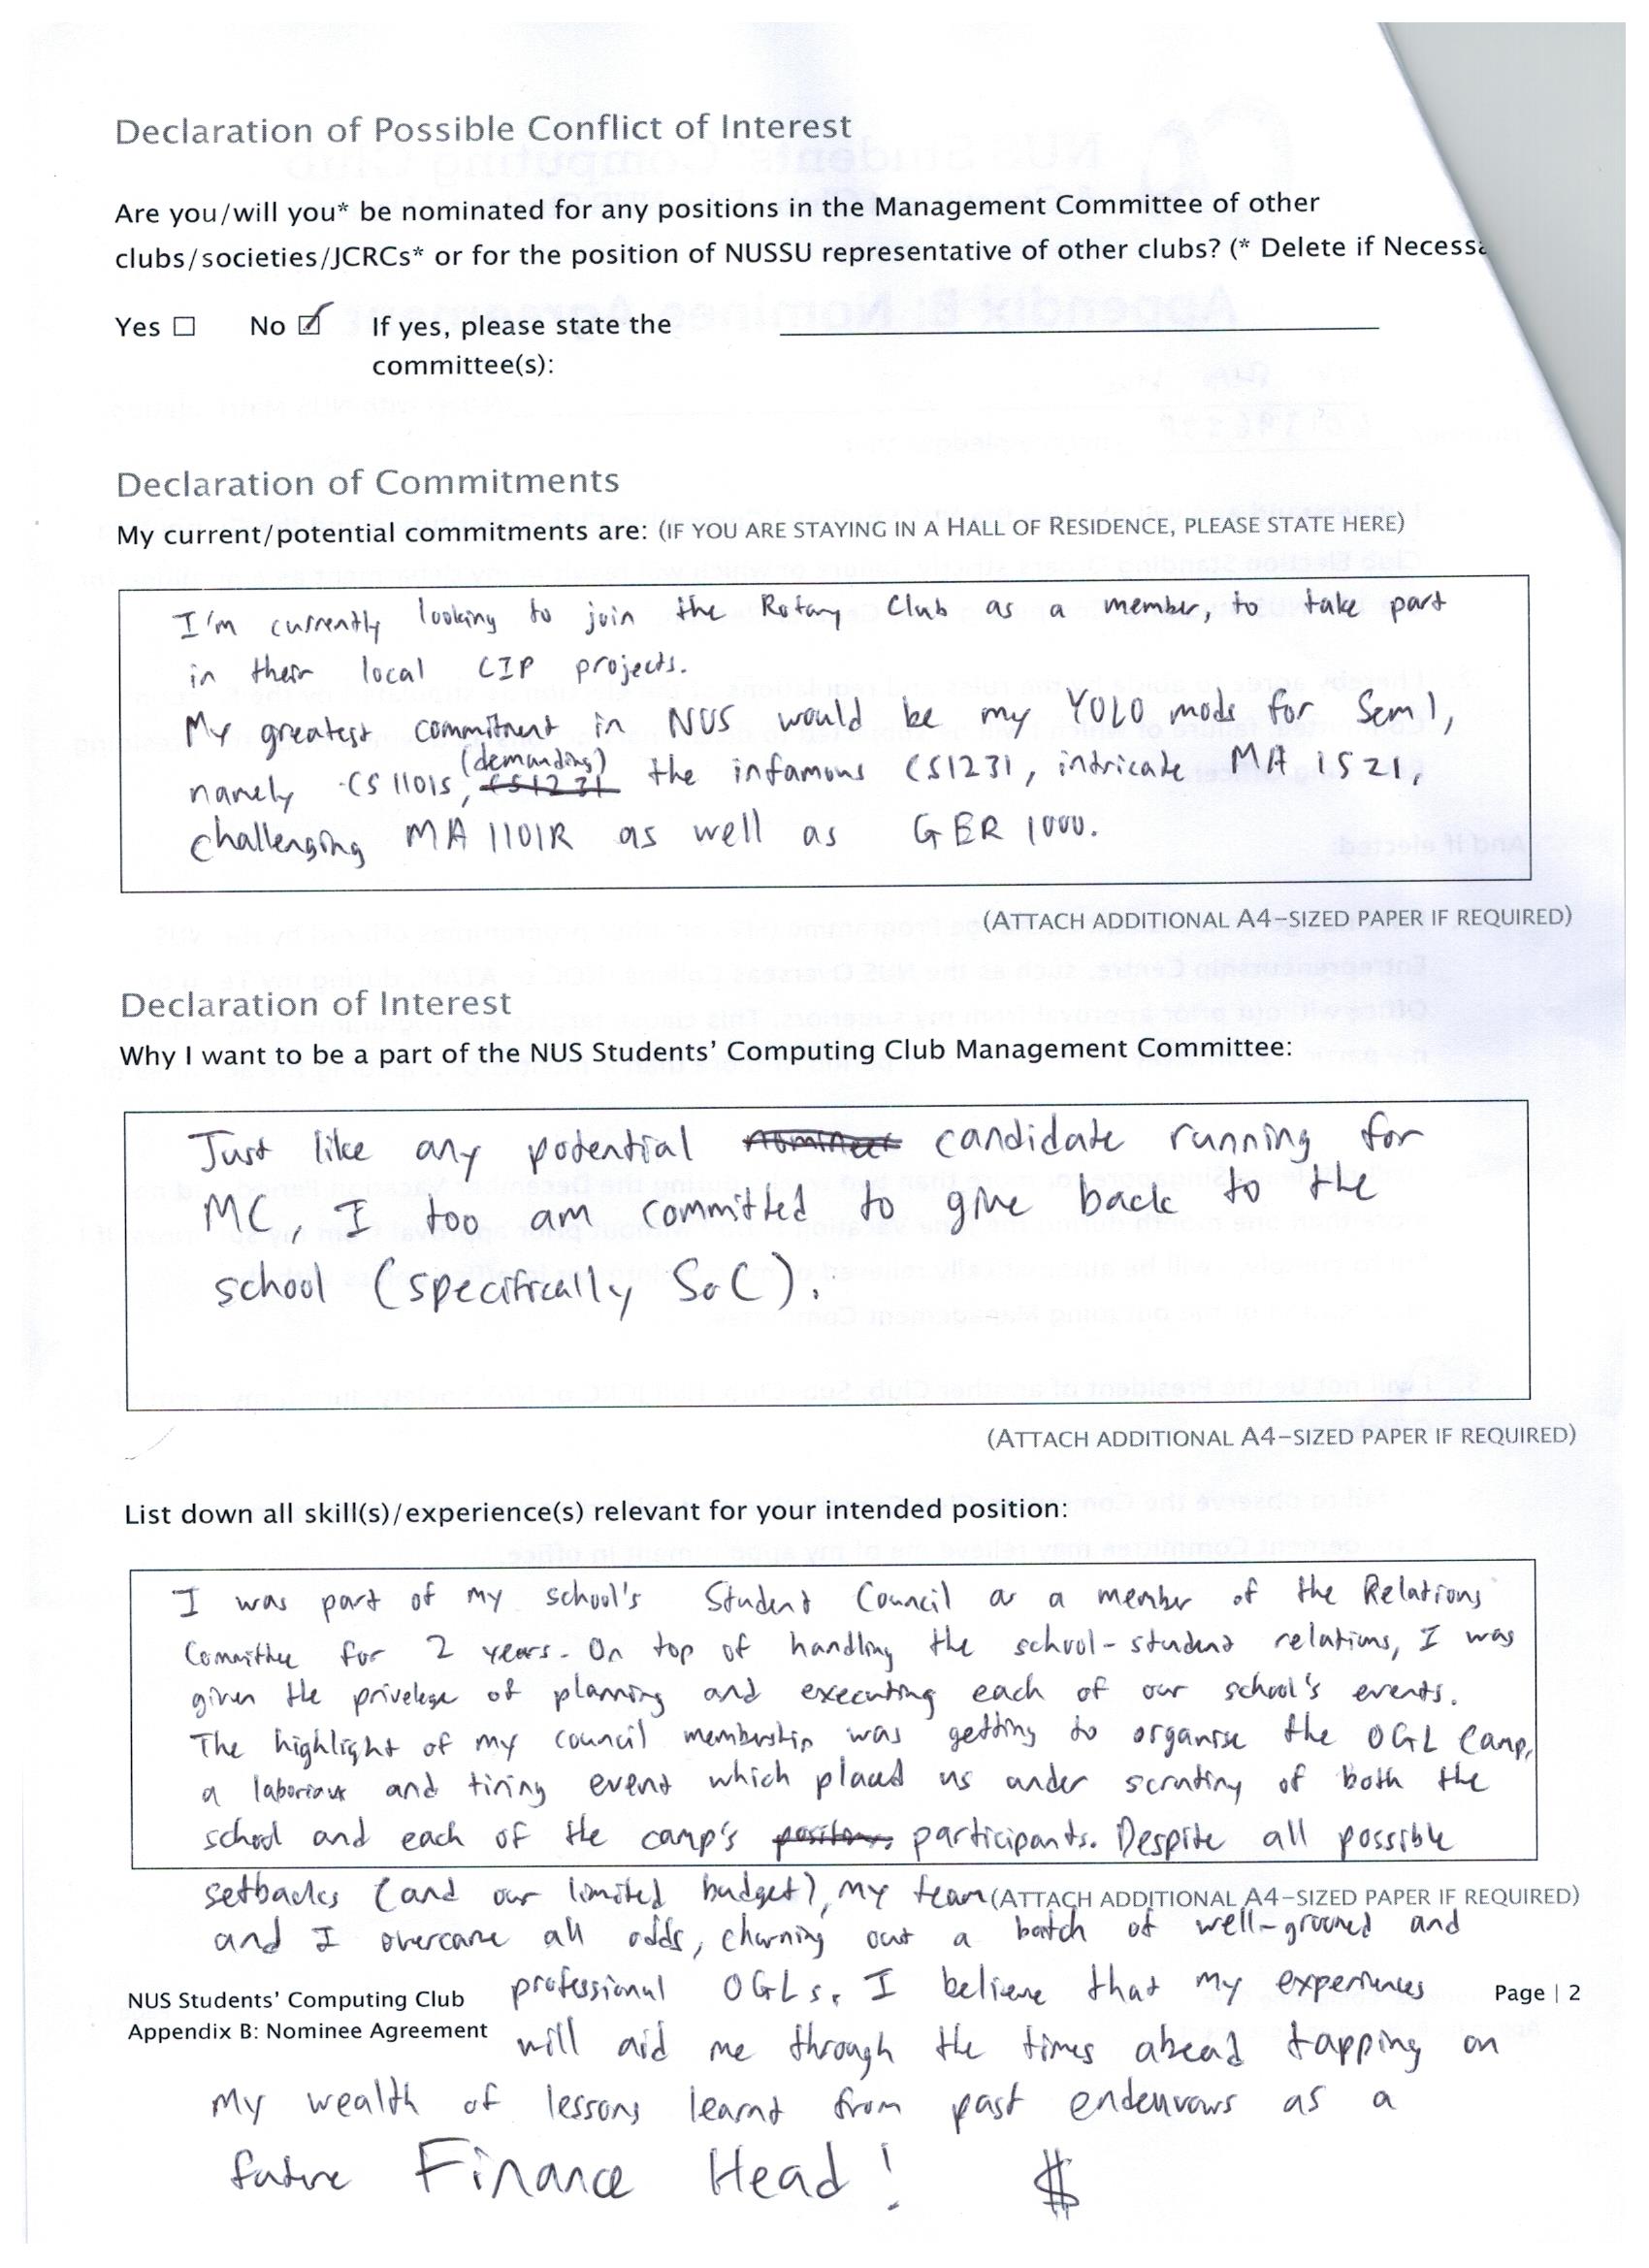 Declaration of Possible Conflict of Interest
Are you/will you* be nominated for any positions in the Management Committee of other
clubs/societies/JCRCs* or for the position of NUSSU representative of other clubs? (* Delete if Necessa
Yes ☐ No ☑ If yes, please state the
committee(s):
Declaration of Commitments
My current/potential commitments are: (IF YOU ARE STAYING IN A HALL OF RESIDENCE, PLEASE STATE HERE)
I'm currently looking to join the Rotary Club as a member, to take part
in their local CIP projects.
My greatest commitment in NUS would be my YOLO mods for Sem 1,
(demanding)
namely CS1101S, CS1231 the infamous CS1231, intricate MA1521,
challenging MA1101R as well as GER1000.
(ATTACH ADDITIONAL A4-SIZED PAPER IF REQUIRED)
Declaration of Interest
Why I want to be a part of the NUS Students' Computing Club Management Committee:
Just like any potential candidate running for
MC, I too am committed to give back to the
school (specifically SoC).
(ATTACH ADDITIONAL A4-SIZED PAPER IF REQUIRED)
List down all skill(s)/experience(s) relevant for your intended position:
I was part of my school's Student Council as a member of the Relations
Committee for 2 years. On top of handling the school-student relations, I was
given the privelege of planning and executing each of our school's events.
The highlight of my council membership was getting to organise the OGL Camp,
a laborious and tiring event which placed us under scrutiny of both the
school and each of the camp's participants. Despite all possible
setbacks (and our limited budget), my team (ATTACH ADDITIONAL A4-SIZED PAPER IF REQUIRED)
and I overcame all odds, churning out a batch of well-groomed and
professional OGLs. I believe that my experiences
NUS Students' Computing Club Page | 2
Appendix B: Nominee Agreement
will aid me through the times ahead tapping on
my wealth of lessons learnt from past endeavours as a
future Finance Head! $